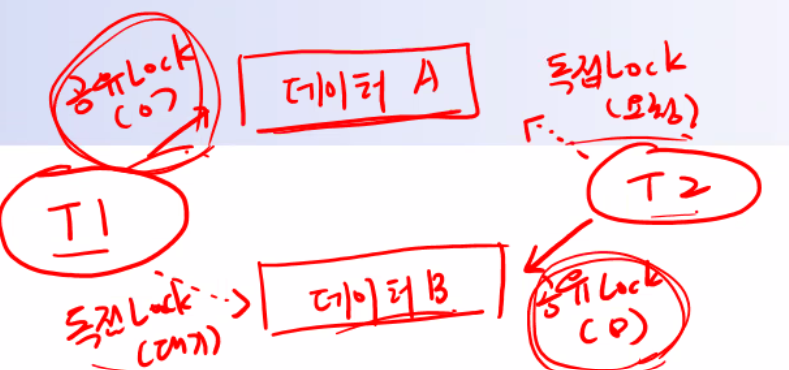 공유Lock
(O)
데이터 A
독점Lock
(요청)
T1
T2
독점Lock
(대기)
데이터 B
공유Lock
(O)